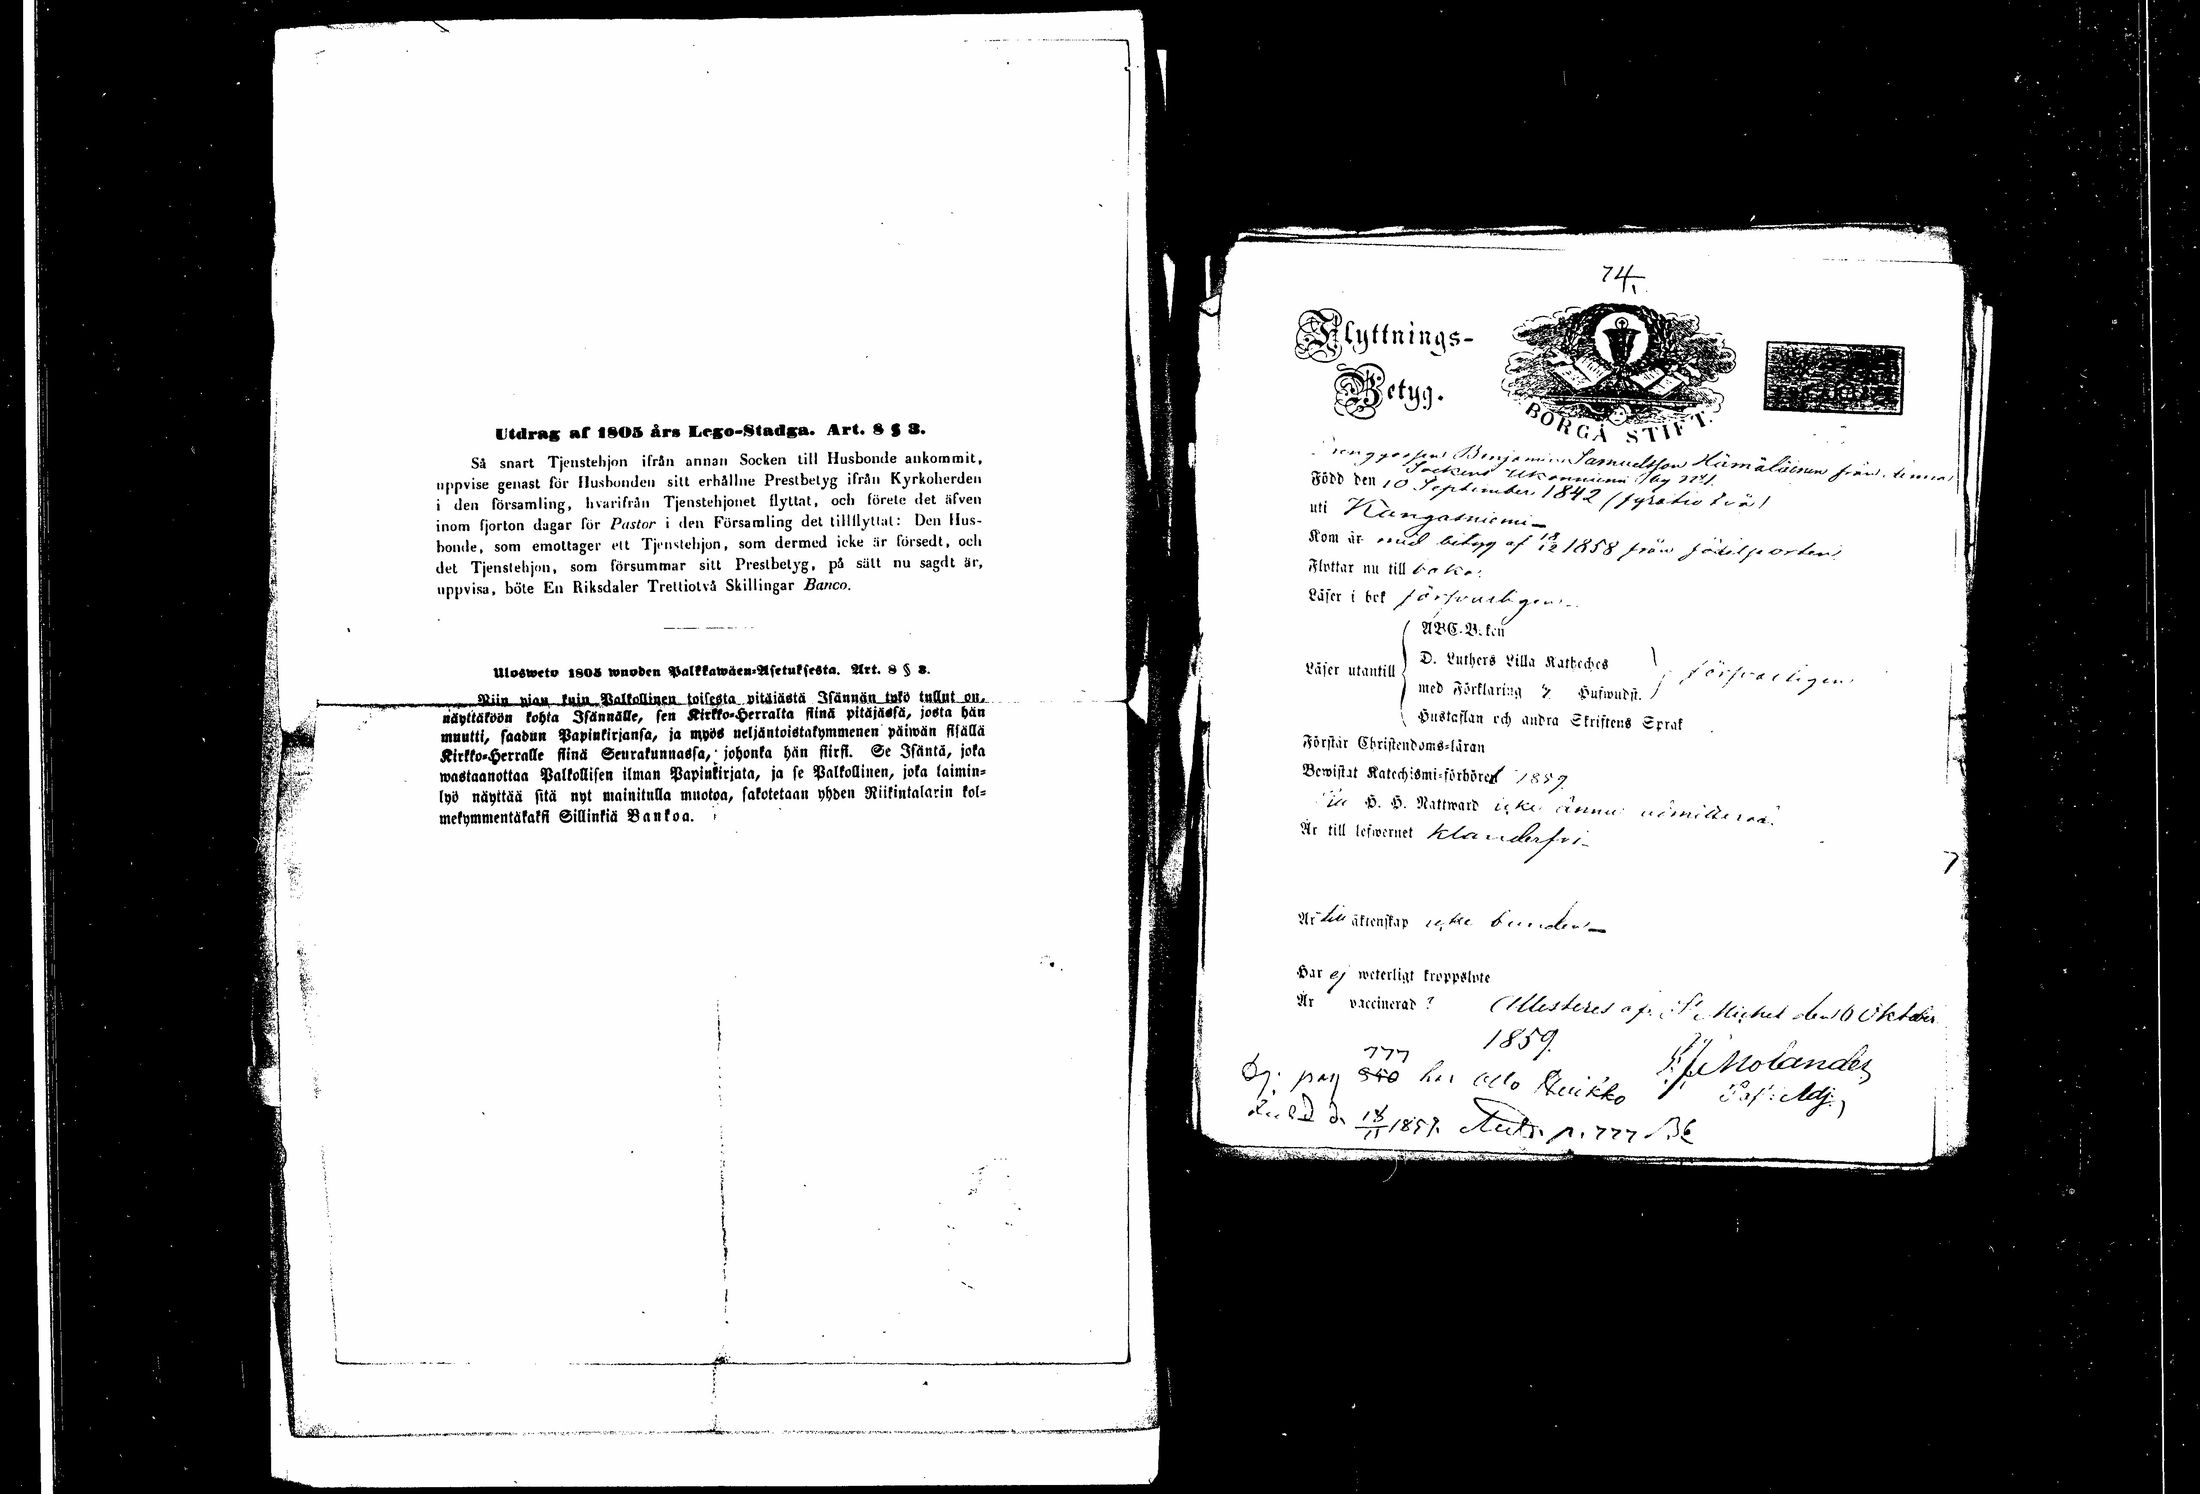 Utdrag af 1805 års Lego-Stadga. Art. 8 § 3.
Så snart Tjenstehjon ifrån annan Socken till Husbonde ankommit,
uppvise genast för Husbonden sitt erhållne Prestbetyg ifrån Kyrkoherden
i den församling, hvarifrån Tjenstehjonet flyttat, och förete det äfven
inom fjorton dagar för Pastor i den Församling det tillflyttat: Den Hus-
bonde, som emottager ett Tjenstehjon, som dermed icke är försedt, och
det Tjenstehjon, som försummar sitt Prestbetyg, på sätt nu sagdt är,
uppvisa, böte En Riksdaler Trettiotvå Skillingar Banco.
Ulosweto 1805 wuoden Palkkawäen-Asetuksesta. Art. 8 § 3.
Niin pian kuin Palkollinen toisesta pitäjästä Isännän tykö tullut on,
näyttäköön kohta Isännälle, sen Kirkko-Herralta siinä pitäjässä, josta hän
muutti, saadun Papinkirjansa, ja myös neljäntoistakymmenen päiwän sisällä
Kirkko-Herralle siinä Seurakunnassa, johonka hän siirsi. Se Isäntä, joka
wastaanottaa Palkollisen ilman Papinkirjata, ja se Palkollinen, joka laimin-
lyö näyttää sitä nyt mainitulla muotoa, sakotetaan yhden Riikintalarin kol-
mekymmentäkaksi Sillinkiä Bankoa.
74/1.
Flyttnings-
Betyg.
BORGÅ STIFT.
Drenggossen Benjamin Samuelsson Hämäläinen från denna
Sockens Ukonniemi by N:o 1.
Född den 10 September 1842 (fyratio två)
uti Kangasniemi
Kom år med betyg af 18/12 1858 från födelseorten
Flyttar nu till baka.
Läser i bok försvarligen
Läser utantill
ABC-Boken
D. Luthers Lilla Katheches
med Förklaring Hufwudst.
Hustaflan och andra Skriftens Språk
försvarligen
Förstår Christendoms-läran
Bewistat Katechismi-förhöret 1859
Till H. H. Nattward icke ännu admitterad.
Är till lefwernet klanderfri
Är till äktenskap icke bunden
Har ej weterligt kroppslyte
Är vaccinerad?
Attesteres af St Michel den 6 Oktober
1859.
Molander
Past: Adj:
pag 777 har Otto Kuikko
1859. p. 777